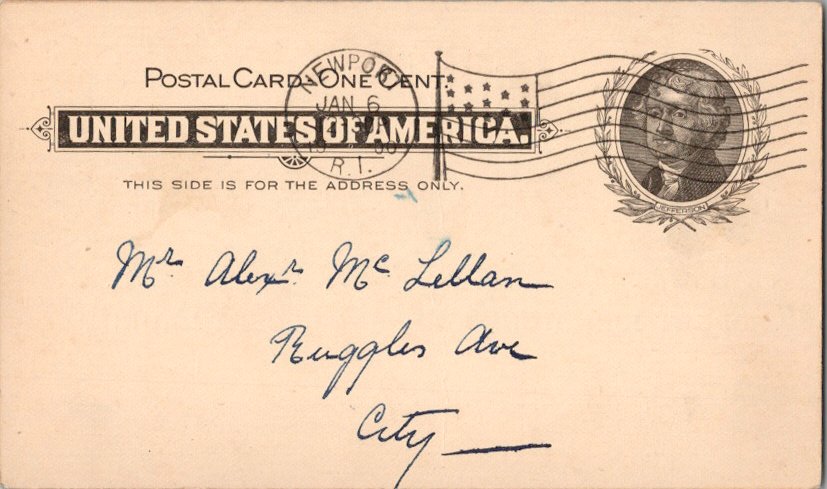 POSTAL CARD-ONE CENT.
UNITED STATES OF AMERICA.
THIS SIDE IS FOR THE ADDRESS ONLY.
NEWPORT
JAN 6
R.I.
JEFFERSON
Mr. Alexr. Mc Lellan
Ruggles Ave
City